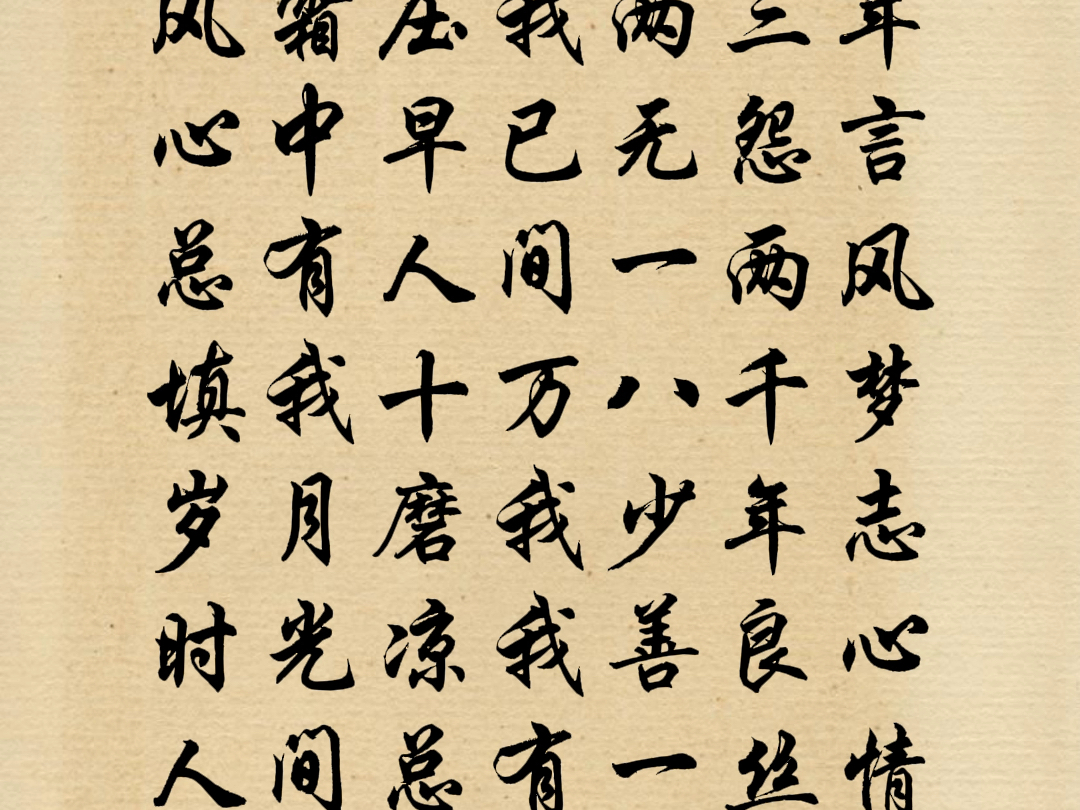 风霜压我两三年
心中早已无怨言
总有人间一两风
填我十万八千梦
岁月磨我少年志
时光凉我善良心
人间总有一丝情